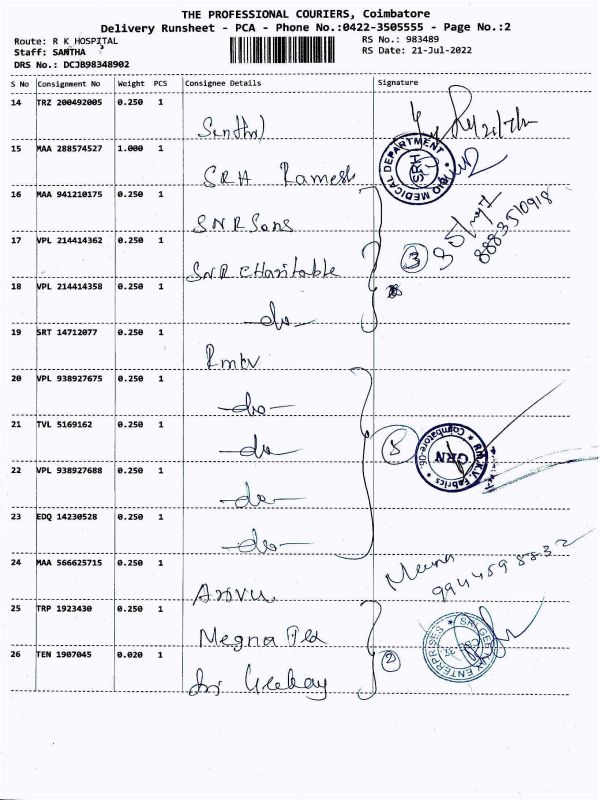 THE PROFESSIONAL COURIERS, Coimbatore
Delivery Runsheet - PCA - Phone No.:0422-3505555 - Page No.:2
Route: R K HOSPITAL
RS No.: 983489
Staff: SANTHA
RS Date: 21-Jul-2022
DRS No.: DCJB98348902
S No Consignment No Weight PCS Consignee Details Signature
14 TRZ 200492005 0.250 1
15 MAA 288574527 1.000 1 SRH Ramesh
BIO MEDICAL DEPARTMENT SRH
16 MAA 941210175 0.250 1 SNR Sons
17 VPL 214414362 0.250 1 SNR Charitable
3
8883510918
18 VPL 214414358 0.250 1 -do-
19 SRT 14712077 0.250 1 Rmkv
20 VPL 938927675 0.250 1 -do-
21 TVL 5169162 0.250 1 -do-
5
R.M.K.V. Fabrics * Coimbatore-06 * GRN
22 VPL 938927688 0.250 1 -do-
23 EDQ 14230528 0.250 1 -do-
24 MAA 566625715 0.250 1 Arivu
Meena
9944598832
25 TRP 1923430 0.250 1 Megna Tex
26 TEN 1907045 0.020 1 Sri
2
ENTERPRISES